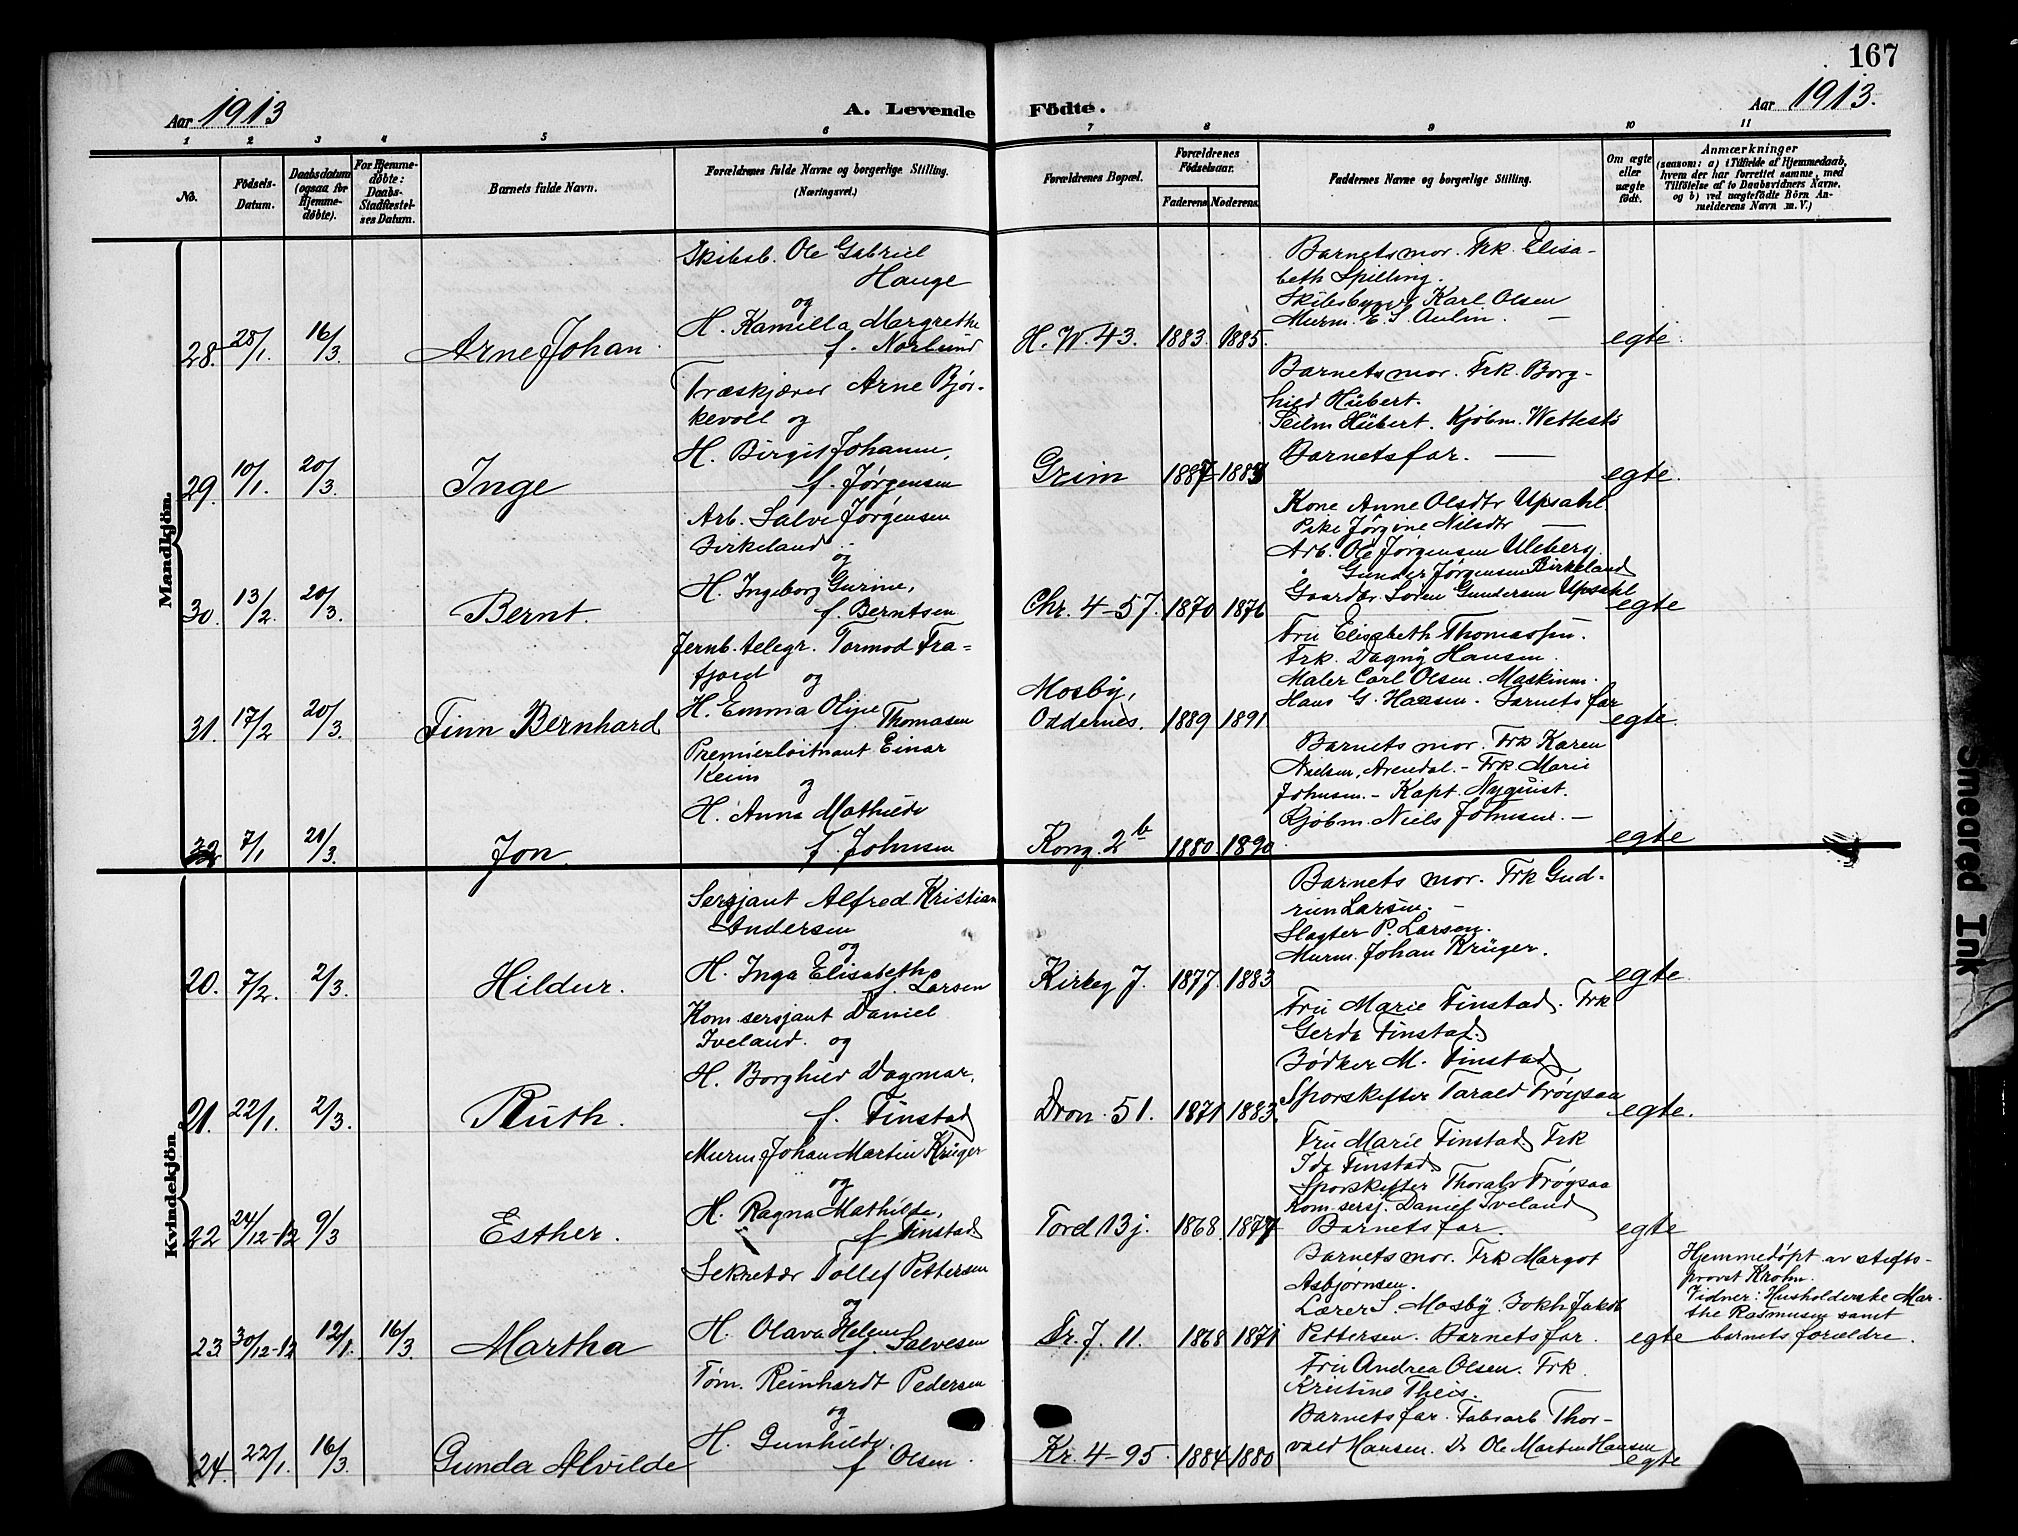 167
Aar 1913
A. Levende Födte.
Aar 1913.
1 2 3 4 5 6 7 8 9 10 11
No.
Födsels-Datum.
Daabsdatum (ogsaa for Hjemme-døbte).
For Hjemme-døbte: Daabs-Stadfæstel-ses Datum.
Barnets fulde Navn.
Forældrenes fulde Navne og borgerlige Stilling. (Næringsvei.)
Forældrenes Bopæl.
Forældrenes Födselsaar.
Faderens Moderens.
Faddernes Navne og borgerlige Stilling.
Om ægte eller uægte født.
Anmærkninger
(saasom: a) i Tilfælde af Hjemmedaab,
hvem der har forrettet samme, med
Tilföielse af to Daabsvidners Navne.
og b) ved uægtefödte Börn An-
melderens Navn m. V.)
Mandkjön.
Skibsb. Ole Gabriel
Hauge
og
H. Kamilla Margrethe
f. Norlund
28. 28/1. 16/3 Arne Johan. H. W. 43. 1883. 1885.
Barnets mor. Frk. Elisa-
beth Spilling.
Skibsbygg. Karl Olsen
Murm. E. S. Aulin. —
egte.
Træskjærer Arne Bjør-
kevoll og
H. Birgit Johanne,
f. Jørgensen
29. 10/1. 20/3. Inge Grim 1887 1889
Barnets mor. Frk. Borg-
hild Hübert.
Seilm Hübert. Kjøbm. Wettestø
Barnets far. —
egte.
Arb. Salve Jørgensen
Birkeland
og
H. Ingeborg Gurine,
f. Berntsen
30. 13/2. 20/3. Bernt. Chr. 4-57. 1870 1876
Kone Anne Olsdtr Upsahl
Pike Jørgine Nilsdtr —
Arb. Ole Jørgensen Uleberg.
Gunder Jørgensen Birkeland
Gaardbr. Søren Gundersen Upsahl
egte
Jernb. telegr. Tormod Fra-
fjord og
H. Emma Oline
f. Thomasen
31. 17/2 20/3. Finn Bernhard Mosby,
Oddernes. 1889 1891
Fru Elisabeth Thomassen.
Frk. Dagny Hansen.
Maler Carl Olsen. Maskinm.
Hans G. Hansen. Barnets far
egte.
Premierløitnant Einar
Keim
og
H. Anna Mathilde
f. Johnsen
32 7/1 21/3. Jon. Kong. 2b 1880. 1890
Barnets mor. Frk Karen
Nielsen, Arendal. - Frk. Marie
Johnsen. - Kapt. Nyquist.
Kjøbm. Niels Johnsen. —
egte
Kvindekjön
Sersjant Alfred Kristian
Andersen
og
H. Inga Elisabeth
f. Larsen
20. 7/2. 2/3. Hildur. Kirkeg 7. 1877. 1883
Barnets mor. Frk Gud-
run Larsen. —
Slagter P. Larsen.
Murm. Johan Krüger.
egte.
Kom. sersjant Daniel
Iveland. og
H. Borghild Dagmar,
f. Finstad
21. 22/1. 2/3. Ruth. Dron. 51. 1871 1883.
Fru Marie Finstad. Frk
Gerda Finstad.
Bødker M. Finstad
Sporskifter Tarald Frøysaa
egte.
Murm. Johan Martin Krüger
og
H. Ragna Mathilde,
f. Finstad
22 24/12-12 9/3 Esther. Tord 13j. 1868. 1877
Fru Marie Finstad Frk
Ida Finstad
Sporskifter Thoralv Frøysaa
Kom. sersj. Daniel Iveland
Barnets far.
egte
Sekretær Tollef Pettersen
og
H. Olava Helene
f. Salvesen
23. 30/12-12 12/1. 16/3. Martha Dr. 7. 11. 1868 1871
Barnets mor. Frk Margot
Asbjørnsen.
Lærer S. Mosby. Bokh. Jakob
Pettersen. Barnets far.
egte
Hjemmedøpt av stifts-
provst Krohn.
Vidner: Husholderske Mar-
the Rasmusen samt
barnets forældre.
Tøm. Reinhardt Pedersen
og
H. Gunhilde,
f Olsen.
24. 22/1. 16/3. Gunda Alvilde Kr. 4-95. 1884 1880
Fru Andrea Olsen. Frk.
Kristine Theis.
Barnets far. Fabrarb Thor-
vald Hansen. Do Ole Martin Hansen
egte
Smeared Ink